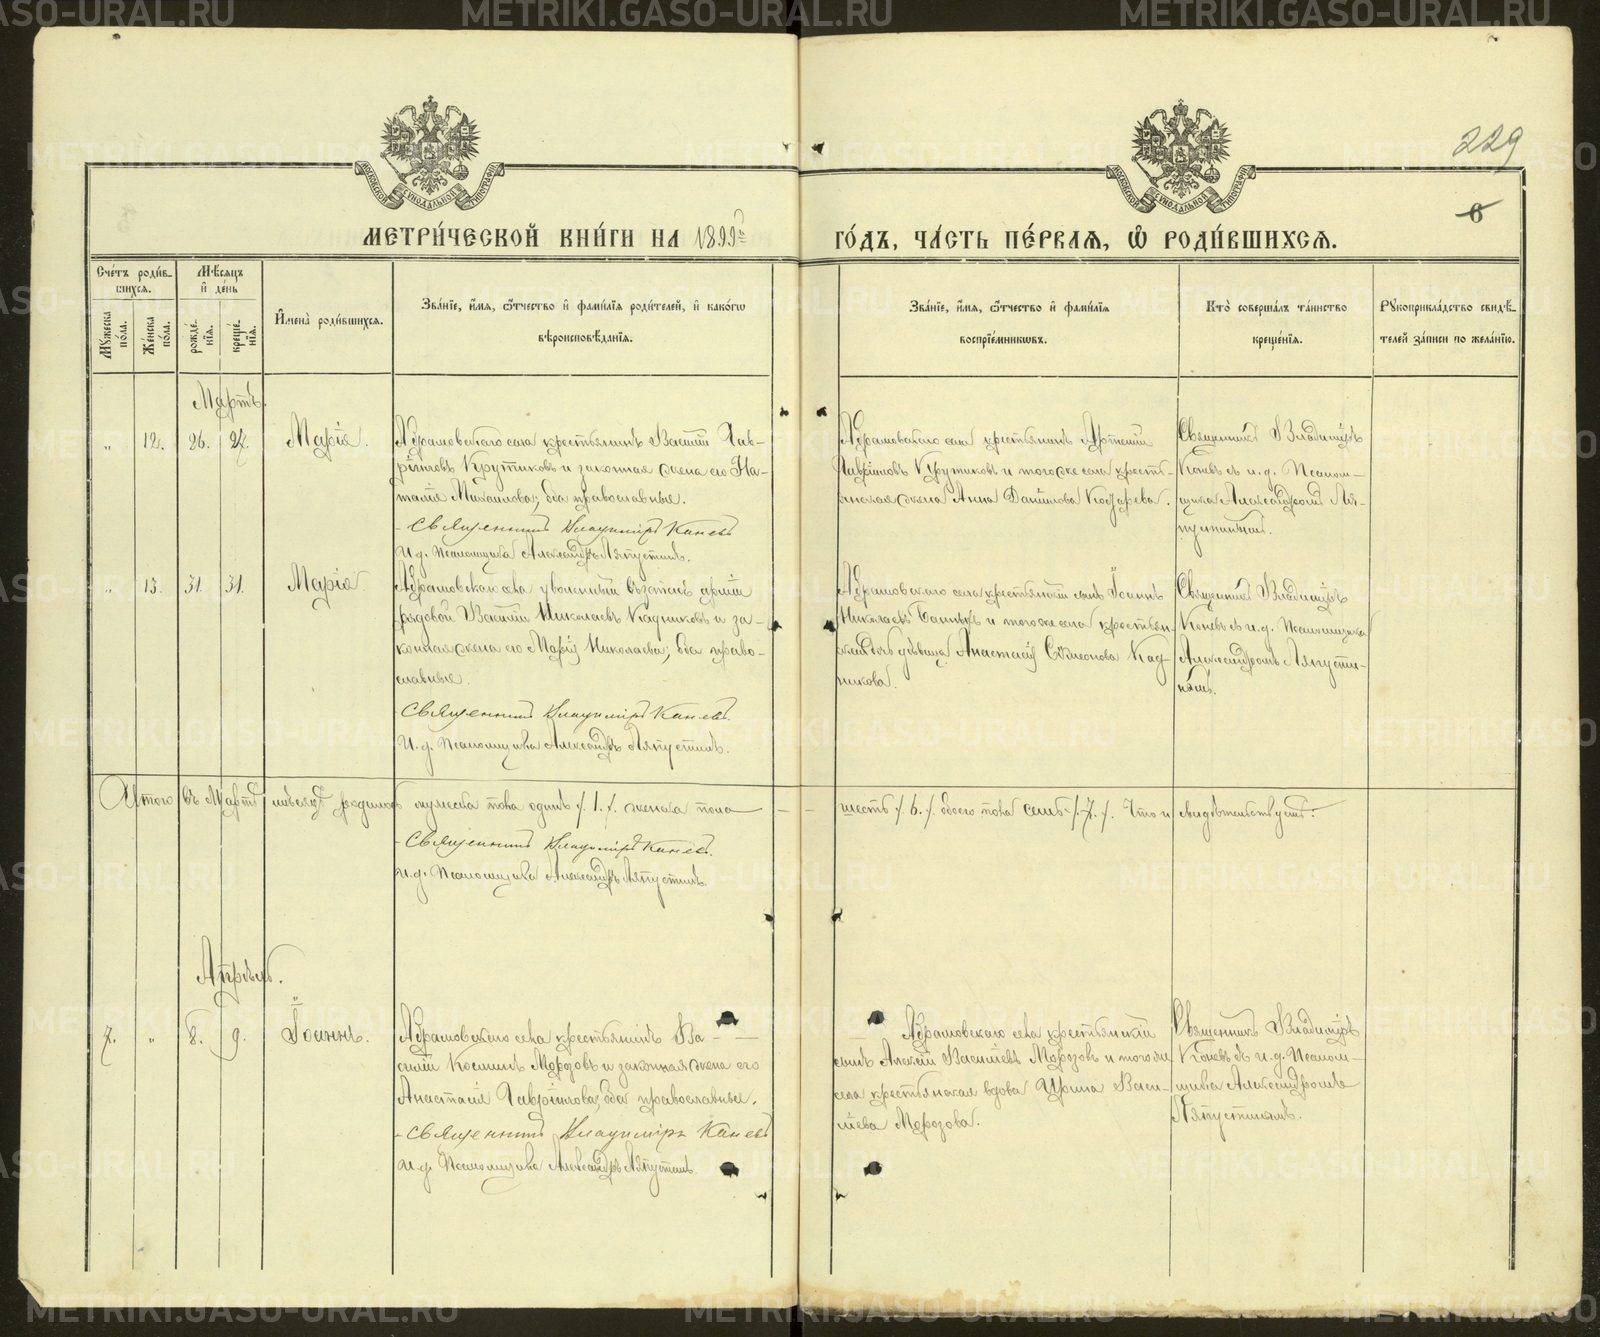 229
6
МОСКОВСКОЙ СѴНОДАЛЬНОЙ ТИПОГРАФІИ
МОСКОВСКОЙ СѴНОДАЛЬНОЙ ТИПОГРАФІИ
МЕТРИ́ЧЕСКОЙ КНИ́ГИ НА 1899й ГО́ДЪ, ЧА́СТЬ ПЕ́РВАЯ, Ѡ РОДИ́ВШИХСЯ.
Сче́тъ роди́в-
шихся.
Мꙋ́жеска по́ла.
Же́нска по́ла.
Мѣ́сяцъ
и҆ де́нь
рожде́нїя.
креще́нїя.
И҆мена̀ роди́вшихся.
Зва́нїе, и҆́мя, ѻ҆́тчество и҆ фами́лїя роди́телей, и҆ како́гѡ
вѣроисповѣ́данїя.
Зва́нїе, и҆́мя, ѻ҆́тчество и҆ фами́лїя
воспрїе́мникѡвъ.
Кто̀ соверша́лъ та́инство
креще́нїя.
Рꙋкоприкла́дство свидѣ́-
телей за́писи по жела́нїю.
Мартъ.
" 12. 26. 27. Марія.
Абрамовскаго села крестьянинъ Василій Гав-
ріиловъ Крутиковъ и законная жена его На-
талія Михаилова; оба православные.
Священникъ Владиміръ Каневъ
И. д. Псаломщика Александръ Ляпустинъ.
Абрамовскаго села крестьянинъ Артемій
Гавріиловъ Крутиковъ и того же села кресть-
янская жена Анна Данилова Кочнева.
Священникъ Владиміръ
Каневъ съ и. д. Псалом-
щика Александромъ Ля-
пустинымъ.
" 13. 31. 31. Марія.
Абрамовскаго села уволенный въ запасъ арміи
рядовой Василій Николаевъ Кадниковъ и за-
конная жена его Марія Николаева; оба право-
славные.
Священникъ Владиміръ Каневъ.
И. д. Псаломщика Александръ Ляпустинъ.
Абрамовскаго села крестьянскій сынъ Іоаннъ
Николаевъ и того же села крестьян-
ская дочь дѣвица Анастасія Симеонова Кад-
никова.
Священникъ Владиміръ
Каневъ съ и. д. Псаломщика
Александромъ Ляпусти-
нымъ.
А итого въ Мартѣ мѣсяцѣ родилось мужеска пола одинъ /.1./. женска пола — — шесть /.6./. обоего пола семь /.7./. Что и свидѣтельствуемъ.
Священникъ Владиміръ Каневъ.
И. д. Псаломщика Александръ Ляпустинъ.
Апрѣль.
7. " 8. 9. Іоаннъ.
Абрамовскаго села крестьянинъ Ва-
силій Косминъ Морозовъ и законная жена его
Анастасія Гавріилова; оба православные.
Священникъ Владиміръ Каневъ
И. д. Псаломщика Александръ Ляпустинъ.
Абрамовскаго села крестьянскій
сынъ Алексій Васильевъ Морозовъ и того же
села крестьянская вдова Ирина Васи-
льева Морозова.
Священникъ Владиміръ
Каневъ съ и. д. Псалом-
щика Александромъ
Ляпустинымъ.
METRIKI.GASO-URAL.RU